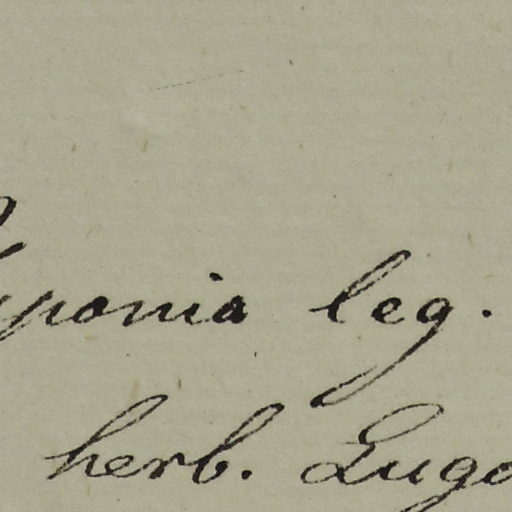 yponia leg.
herb. Lugd